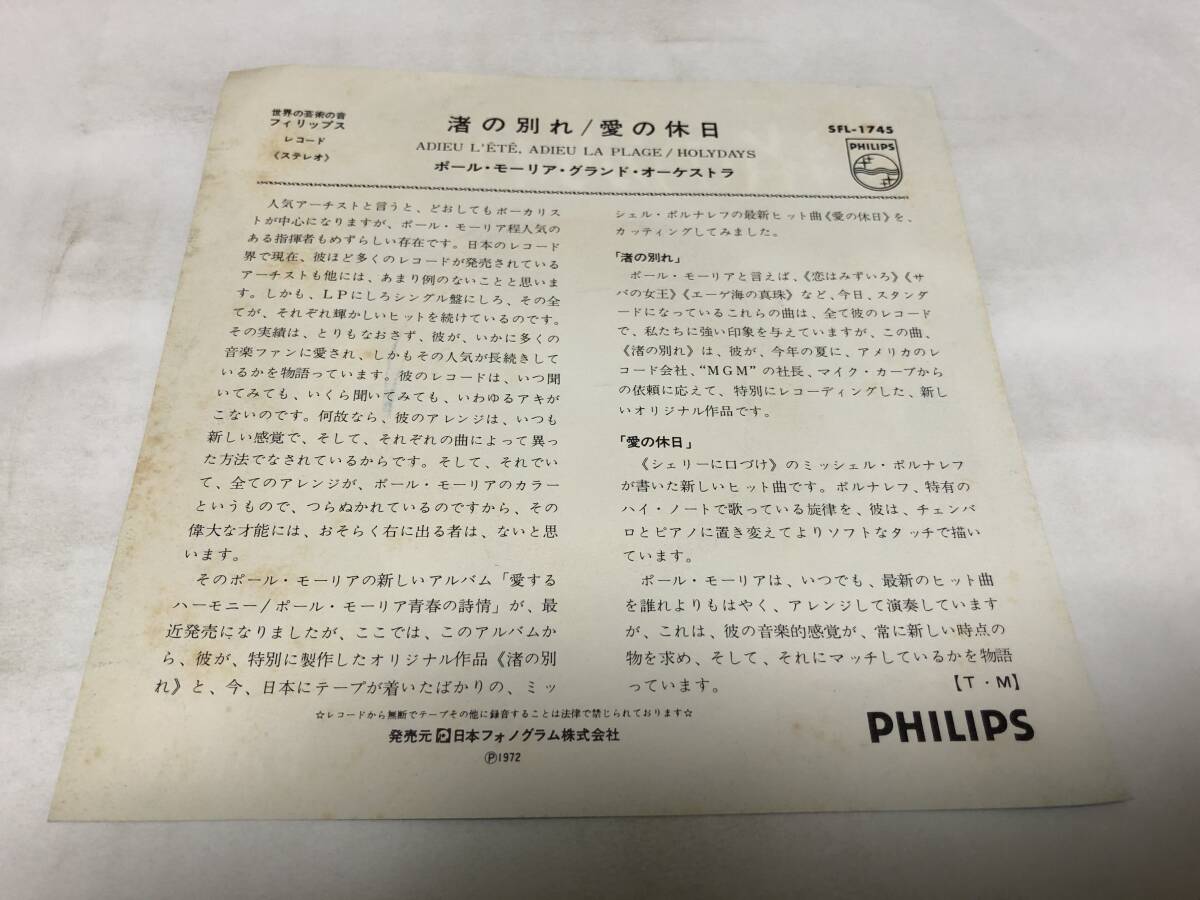 世界の芸術の音
フィリップス
レコード
《ステレオ》
渚の別れ/愛の休日
ADIEU L'ÉTÉ, ADIEU LA PLAGE/HOLYDAYS
ポール・モーリア・グランド・オーケストラ
SFL-1745
PHILIPS
人気アーチストと言うと、どおしてもボーカリス
トが中心になりますが、ポール・モーリア程人気の
ある指揮者もめずらしい存在です。日本のレコード
界で現在、彼ほど多くのレコードが発売されている
アーチストも他には、あまり例のないことと思いま
す。しかも、LPにしろシングル盤にしろ、その全
てが、それぞれ輝かしいヒットを続けているのです。
その実績は、とりもなおさず、彼が、いかに多くの
音楽ファンに愛され、しかもその人気が長続きして
いるかを物語っています。彼のレコードは、いつ聞
いてみても、いくら聞いてみても、いわゆるアキが
こないのです。何故なら、彼のアレンジは、いつも
新しい感覚で、そして、それぞれの曲によって異っ
た方法でなされているからです。そして、それでい
て、全てのアレンジが、ポール・モーリアのカラー
というもので、つらぬかれているのですから、その
偉大な才能には、おそらく右に出る者は、ないと思
います。
そのポール・モーリアの新しいアルバム「愛する
ハーモニー/ポール・モーリア青春の詩情」が、最
近発売になりましたが、ここでは、このアルバムか
ら、彼が、特別に製作したオリジナル作品《渚の別
れ》と、今、日本にテープが着いたばかりの、ミッ
シェル・ポルナレフの最新ヒット曲《愛の休日》を、
カッティングしてみました。
「渚の別れ」
ポール・モーリアと言えば、《恋はみずいろ》《サ
バの女王》《エーゲ海の真珠》など、今日、スタンダ
ードになっているこれらの曲は、全て彼のレコード
で、私たちに強い印象を与えていますが、この曲、
《渚の別れ》は、彼が、今年の夏に、アメリカのレ
コード会社、“MGM”の社長、マイク・カーブから
の依頼に応えて、特別にレコーディングした、新し
いオリジナル作品です。
「愛の休日」
《シェリーに口づけ》のミッシェル・ポルナレフ
が書いた新しいヒット曲です。ポルナレフ、特有の
ハイ・ノートで歌っている旋律を、彼は、チェンバ
ロとピアノに置き変えてよりソフトなタッチで描い
ています。
ポール・モーリアは、いつでも、最新のヒット曲
を誰れよりもはやく、アレンジして演奏しています
が、これは、彼の音楽的感覚が、常に新しい時点の
物を求め、そして、それにマッチしているかを物語
っています。 【T・M】
☆レコードから無断でテープその他に録音することは法律で禁じられております☆
発売元 日本フォノグラム株式会社
Ⓟ1972
PHILIPS